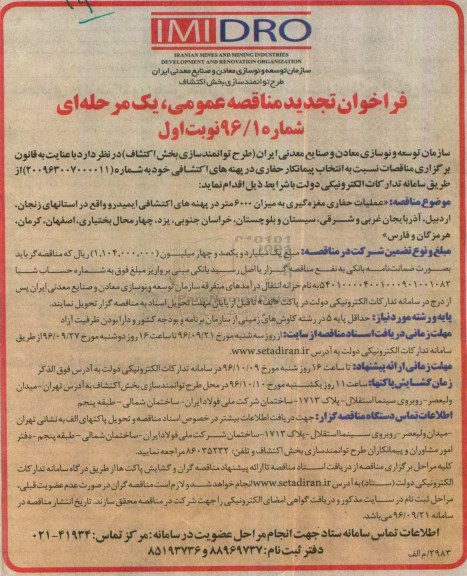 IMIDRO
IRANIAN MINES AND MINING INDUSTRIES
DEVELOPMENT AND RENOVATION ORGANIZATION
سازمان توسعه و نوسازی معادن و صنایع معدنی ایران
طرح توانمندسازی بخش اکتشاف
فراخوان تجدید مناقصه عمومی، یک مرحله‌ای
شماره ۹۶/۱ نوبت اول
سازمان توسعه و نوسازی معادن و صنایع معدنی ایران (طرح توانمندسازی بخش اکتشاف) در نظر دارد با عنایت به قانون
برگزاری مناقصات نسبت به انتخاب پیمانکار حفاری در پهنه های اکتشافی خود به شماره (۲۰۰۹۶۳۰۰۷۰۰۰۰۱۱) از
طریق سامانه تدارکات الکترونیکی دولت با شرایط ذیل اقدام نماید:
موضوع مناقصه: «عملیات حفاری مغزه گیری به میزان ۶۰۰۰ متر در پهنه های اکتشافی ایمیدرو واقع در استانهای زنجان،
اردبیل، آذربایجان غربی و شرقی، سیستان و بلوچستان، خراسان جنوبی، یزد، چهارمحال بختیاری، اصفهان، کرمان،
هرمزگان و فارس»
مبلغ و نوع تضمین شرکت در مناقصه: مبلغ یک میلیارد و یکصد و چهار میلیون (۱,۱۰۴,۰۰۰,۰۰۰) ریال که مناقصه گر باید
بصورت ضمانت نامه بانکی به نفع مناقصه گزار یا اصل رسید بانکی مبنی بر واریز مبلغ فوق به شماره حساب شبا
به نام خزانه انتقال درآمدهای متفرقه سازمان توسعه و نوسازی معادن و صنایع معدنی ایران پس
از درج در سامانه تدارکات الکترونیکی دولت در پاکت «الف» تا قبل از پایان مهلت تحویل اسناد به مناقصه گزار تحویل نمایند.
پایه و رشته مورد نیاز: حداقل پایه ۵ در رشته کاوش های زمینی از سازمان برنامه و بودجه کشور و دارا بودن ظرفیت آزاد
مهلت زمانی دریافت اسناد مناقصه از سایت: از روز سه شنبه مورخ ۹۶/۰۹/۲۱ تا ساعت ۱۶ روز دوشنبه مورخ ۹۶/۰۹/۲۷ از طریق
سامانه تدارکات الکترونیکی دولت به آدرس www.setadiran.ir
مهلت زمانی ارائه پیشنهاد: تا ساعت ۱۶ روز شنبه مورخ ۹۶/۱۰/۰۹ در سامانه تدارکات الکترونیکی دولت به آدرس فوق الذکر
زمان گشایش پاکتها: ساعت ۱۱ روز یکشنبه مورخ ۹۶/۱۰/۱۰ در محل طرح توانمندسازی بخش اکتشاف به آدرس تهران-میدان
ولیعصر-روبروی سینما استقلال-پلاک ۱۷۱۳-ساختمان شرکت ملی فولاد ایران-ساختمان شمالی-طبقه پنجم
اطلاعات تماس دستگاه مناقصه گزار: جهت دریافت اطلاعات بیشتر در خصوص اسناد مناقصه و تحویل پاکتهای الف به نشانی تهران
-میدان ولیعصر-روبروی سینما استقلال-پلاک ۱۷۱۳-ساختمان شرکت ملی فولاد ایران-ساختمان شمالی-طبقه پنجم-دفتر
امور مشاوران و پیمانکاران طرح توانمندسازی بخش اکتشاف و تلفن: ۸۶۰۳۵۲۳۳ مراجعه نمایید.
کلیه مراحل برگزاری مناقصه از دریافت اسناد مناقصه تا ارائه پیشنهاد مناقصه گران و گشایش پاکت ها از طریق درگاه سامانه تدارکات
الکترونیکی دولت (ستاد) به آدرس www.setadiran.ir انجام خواهد شد و لازم است مناقصه گران در صورت عدم عضویت قبلی،
مراحل ثبت نام در سایت مذکور و دریافت گواهی امضای الکترونیکی را جهت شرکت در مناقصه محقق سازند. تاریخ انتشار مناقصه در
سامانه ۹۶/۰۹/۲۱ می باشد.
اطلاعات تماس سامانه ستاد جهت انجام مراحل عضویت در سامانه: مرکز تماس: ۴۱۹۳۴-۰۲۱
دفتر ثبت نام: ۸۸۹۶۹۷۳۷ و ۸۵۱۹۳۷۳۶
۲۹۸۳/م الف